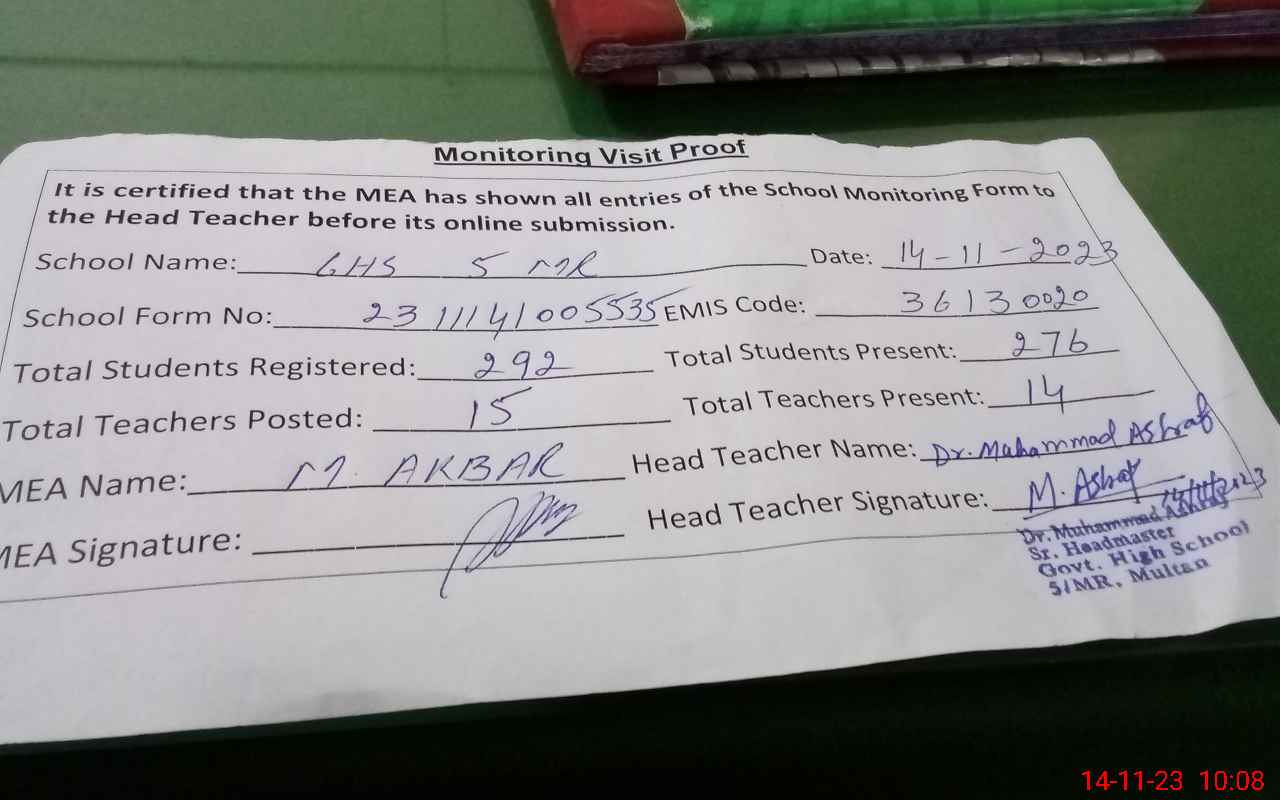 Monitoring Visit Proof
It is certified that the MEA has shown all entries of the School Monitoring Form to
the Head Teacher before its online submission.
School Name: GHS 5 MR Date: 14-11-2023
School Form No: 23111141005535 EMIS Code: 36130020
Total Students Registered: 292 Total Students Present: 276
Total Teachers Posted: 15 Total Teachers Present: 14
MEA Name: M. AKBAR Head Teacher Name: Dr. Muhammad Ashraf
MEA Signature: Head Teacher Signature: M. Ashraf 14/11/2023
Dr. Muhammad Ashraf
Sr. Headmaster
Govt. High School
5/MR, Multan
14-11-23 10:08